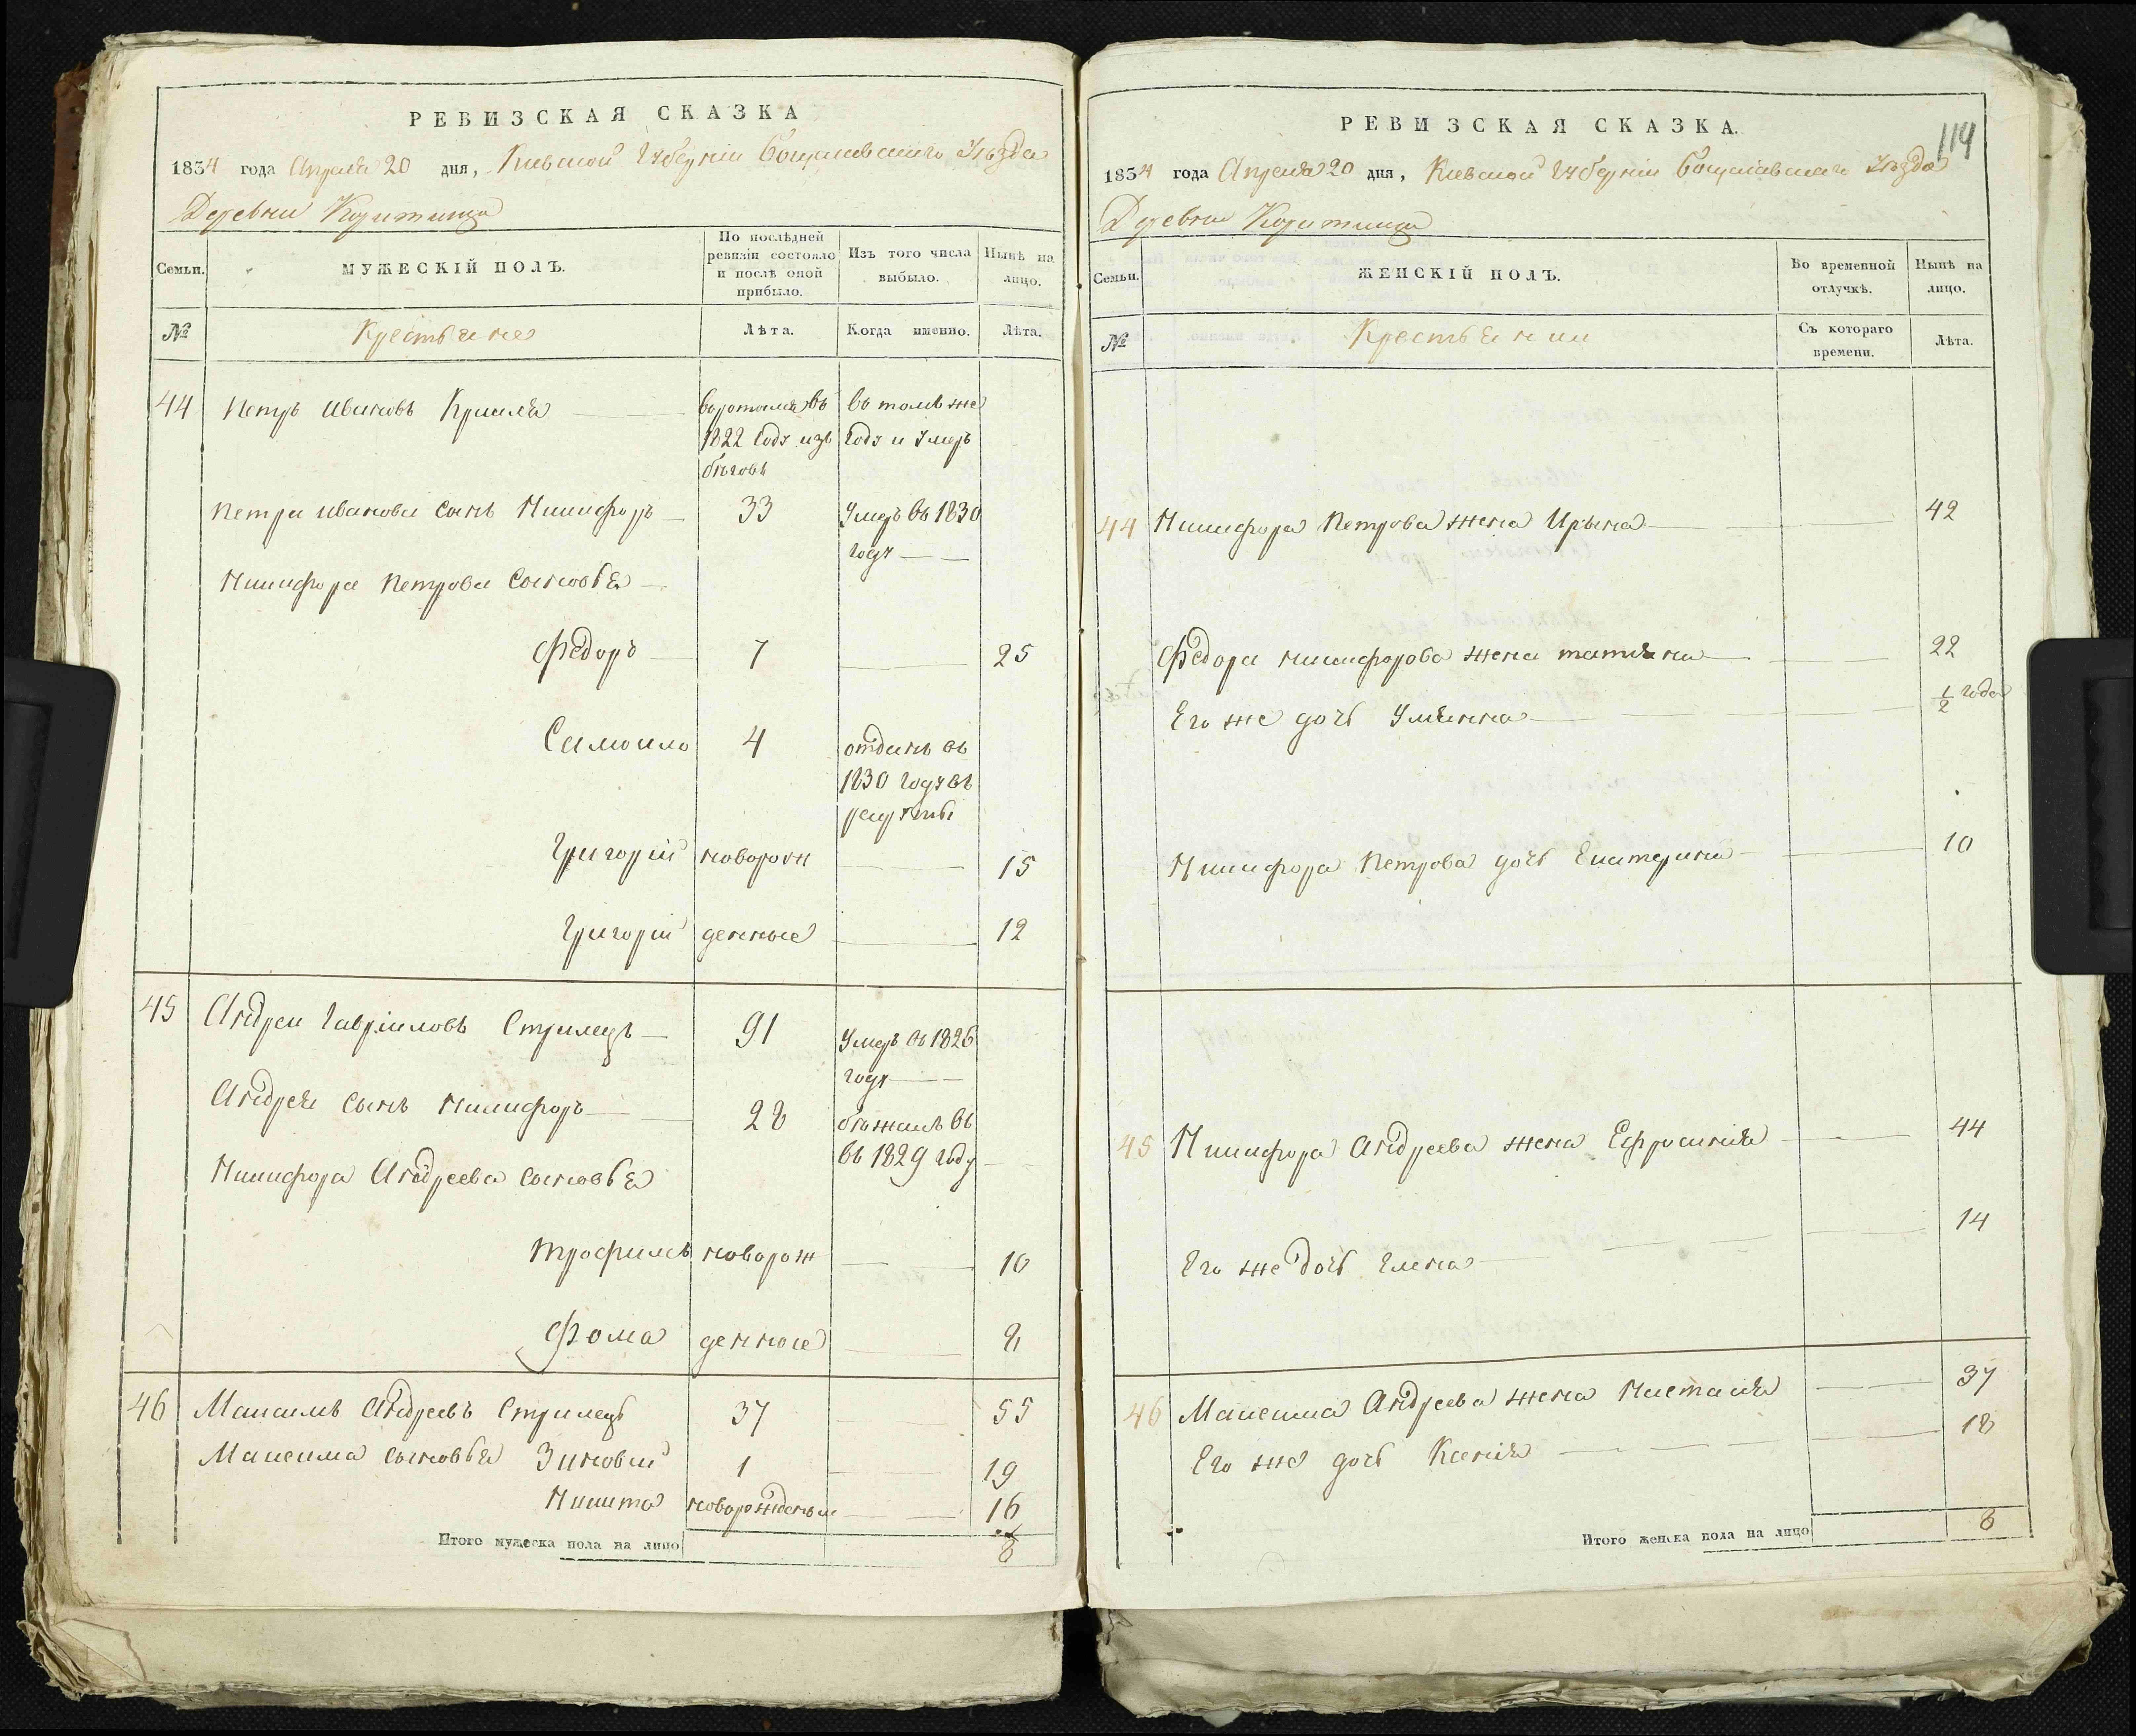 РЕВИЗСКАЯ СКАЗКА
1834 года Апреля 20 дня, Киевской Губерніи Богуславскаго Уѣзда
Деревни Коритища
Семьи.
МУЖЕСКІЙ ПОЛЪ.
По послѣдней ревизіи состояло и послѣ оной прибыло.
Изъ того числа выбыло.
Нынѣ на лицо.
№
Крестьяне
Лѣта.
Когда именно.
Лѣта.
44 Петръ Ивановъ
воротился въ въ томъ же
1822 Году изъ Году и Умеръ
бѣговъ
Петра Иванова Сынъ Никифоръ 33 Умеръ въ 1830
году
Никифора Петрова Сыновья
Федоръ 7 25
Самойло 4 отданъ въ
1830 году въ
рекруты
Григорій новорож 15
Григорій денные 12
45 Андрей Гавріиловъ Стрилецъ 91 Умеръ въ 1826
году
Андрея Сынъ Никифоръ 28 бѣжалъ въ
въ 1829 году
Никифора Андреева Сыновья
Трофимъ новорож 10
Фома денное 8
46 Максимъ Андреевъ Стрилецъ 37 55
Максима Сыновья Зиновій 1 19
Никита новорожденъ 16
Итого мужеска пола на лицо 8
114
РЕВИЗСКАЯ СКАЗКА.
1834 года Апреля 20 дня, Киевской Губерніи Богуславскаго Уѣзда
Деревни Коритища
Семьи.
ЖЕНСКІЙ ПОЛЪ.
Во временной отлучкѣ.
Нынѣ на лицо.
№
Крестьянки
Съ котораго времени.
Лѣта.
44 Никифора Петрова жена Ирына 42
Федора Никифорова жена татіяна 22
Его же дочь Ульянна 1/2 года
Никифора Петрова дочь Екатерина 10
45 Никифора Андреева жена Ефросинія 44
Его же дочь Елена 14
46 Максима Андреева жена Настасія 37
Его же дочь Ксенія 18
Итого женска пола на лицо 8